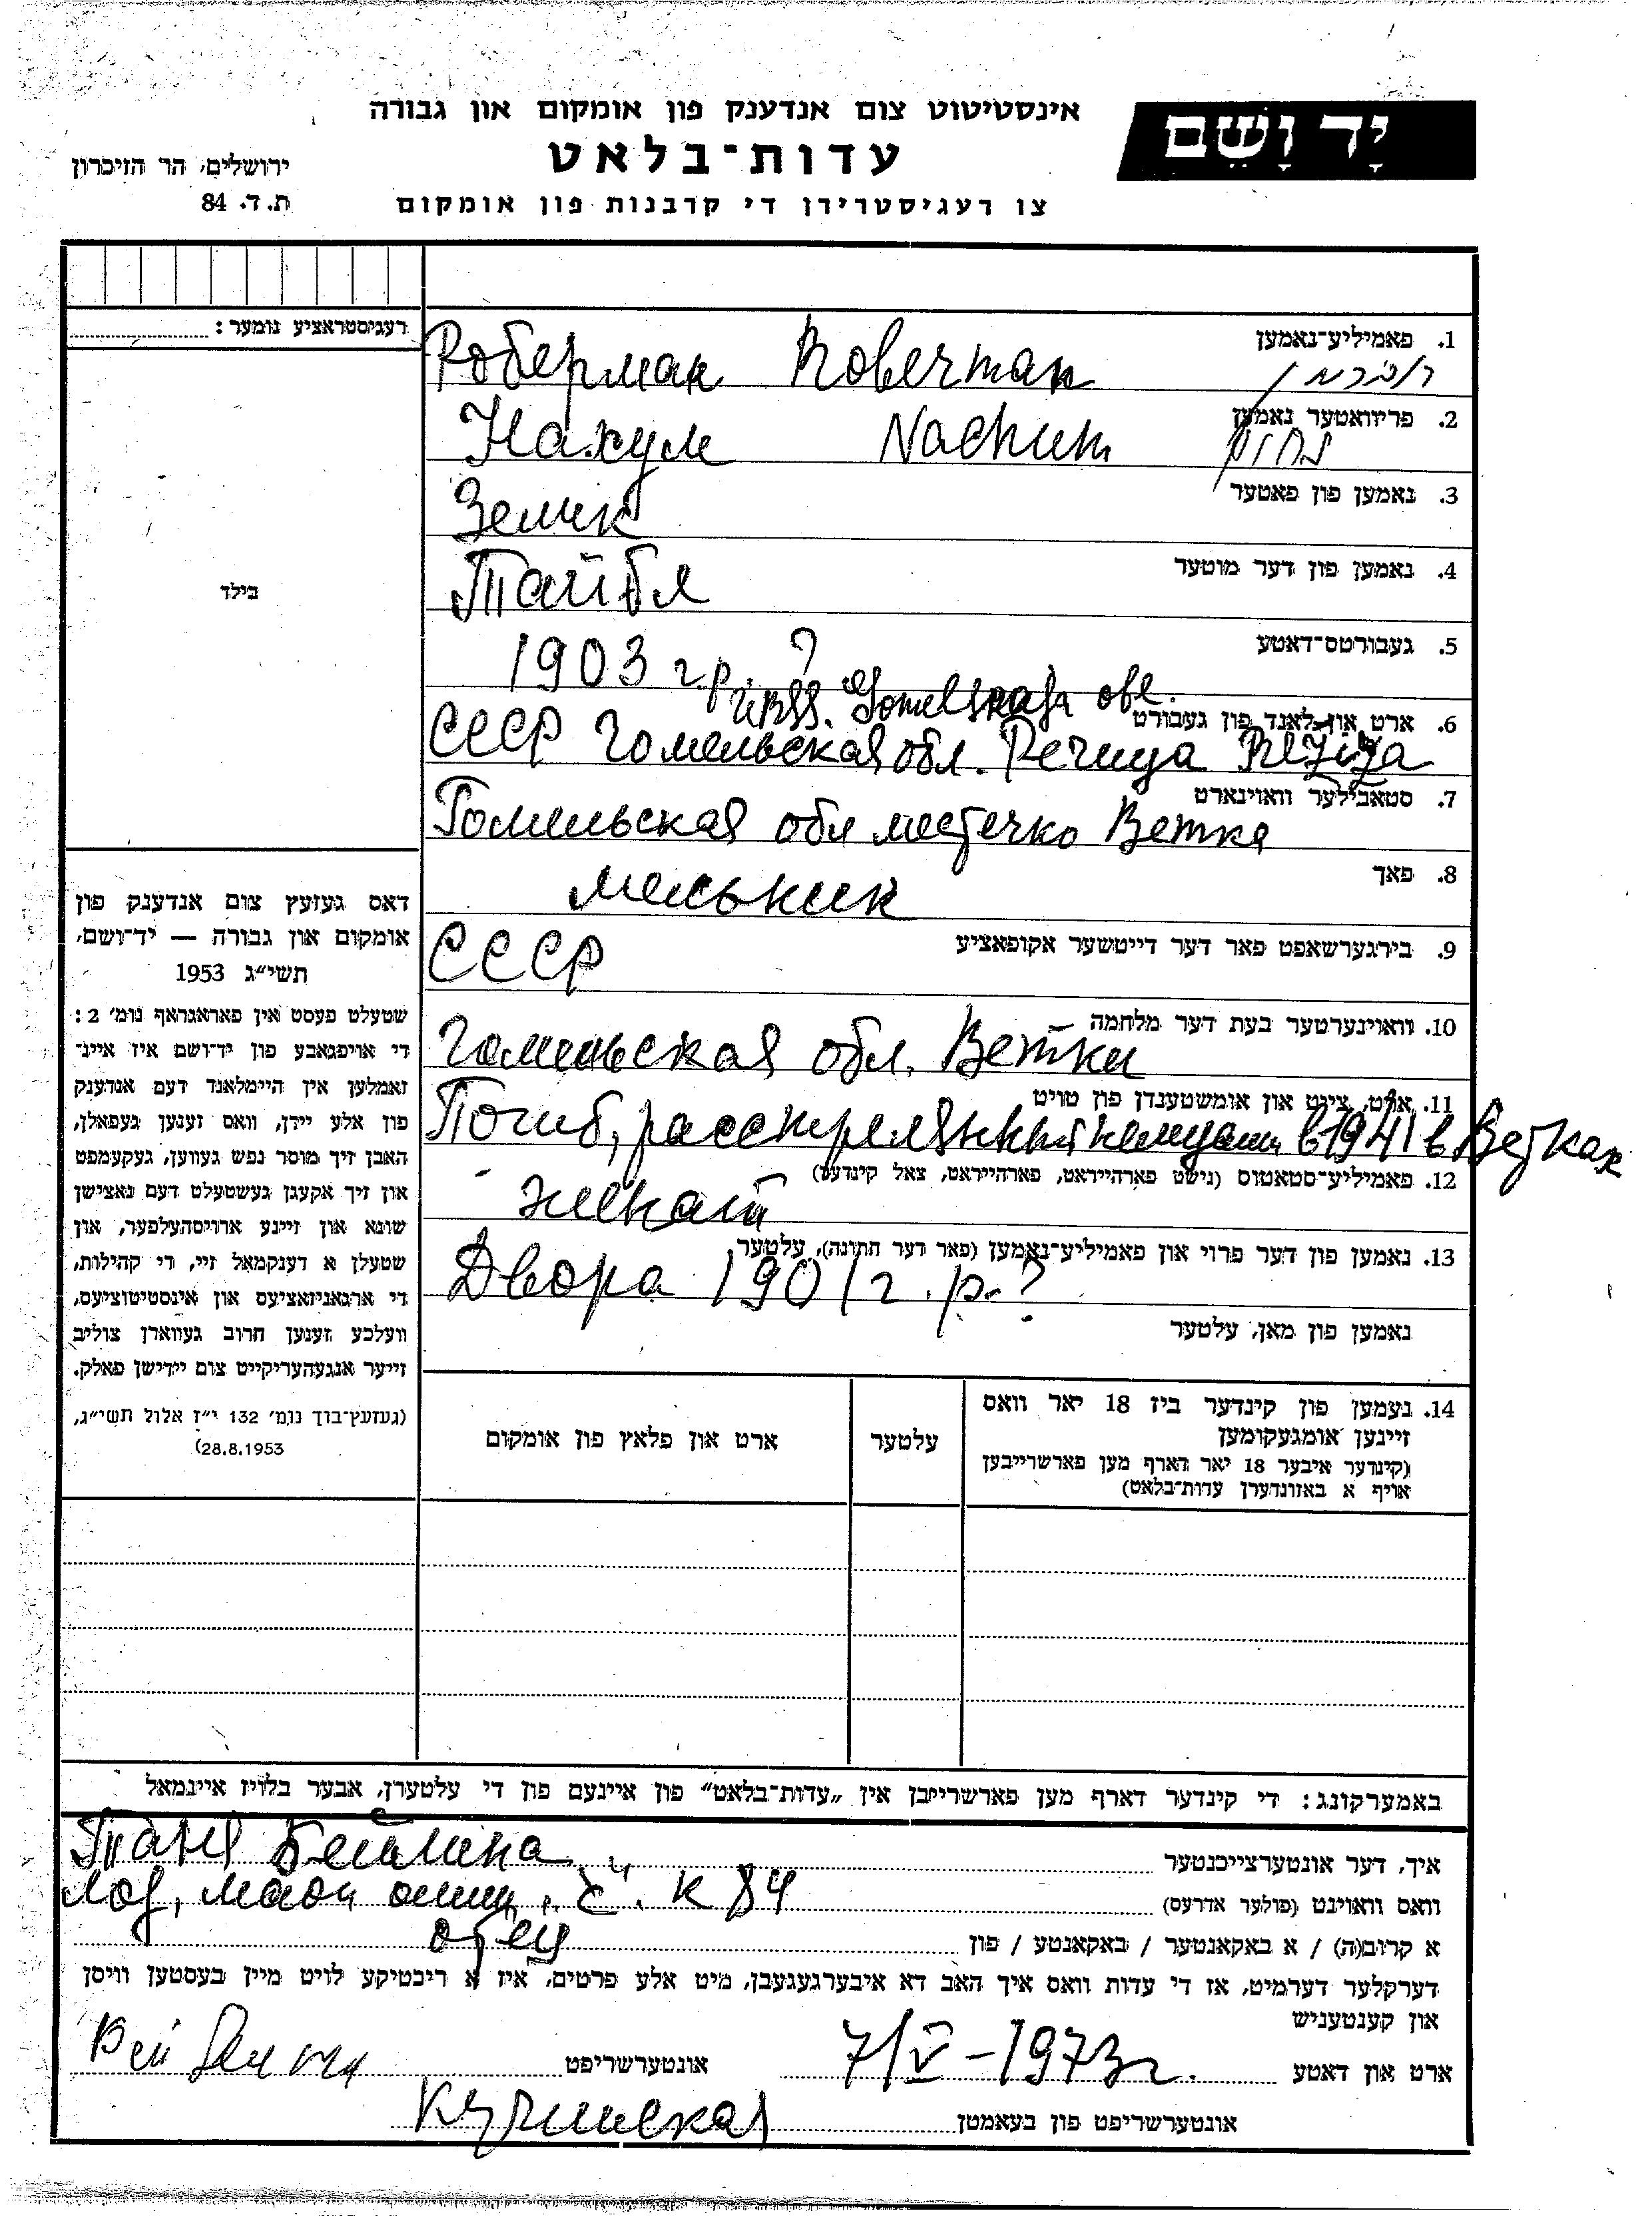 יָד וָשֵׁם
אינסטיטוט צום אנדענק פון אומקום און גבורה
עדות־בלאט
צו רעגיסטרירן די קרבנות פון אומקום
ירושלים, הר הזיכרון
ת. ד. 84
רעגיסטראציע נומער:
בילד
דאס געזעץ צום אנדענק פון
אומקום און גבורה — יד־ושם,
תשי״ג 1953
שטעלט פעסט אין פאראגראף נומ׳ 2:
די אויפגאבע פון יד־ושם איז איינ־
זאמלען אין היימלאנד דעם אנדענק
פון אלע יידן, וואס זענען געפאלן,
האבן זיך מוסר נפש געווען, געקעמפט
און זיך אקעגן געשטעלט דעם נאצישן
שונא און זיינע ארויסהעלפער, און
שטעלן א דענקמאל זיי, די קהילות,
די ארגאניזאציעס און אינסטיטוציעס,
וועלכע זענען חרוב געווארן צוליב
זייער אנגעהעריקייט צום יידישן פאלק.
(געזעץ־בוך נומ׳ 132 י״ז אלול תשי״ג,
28.8.1953)
1. פאמיליע־נאמען
Роберман Roberman רוברמן
2. פריוואטער נאמען
Нахум Nachum נחום
3. נאמען פון פאטער
Зелик
4. נאמען פון דער מוטער
Тайбл
5. געבורטס־דאטע
1903 г.р. ?
6. ארט און לאנד פון געבורט
Gomelskaja obl.
СССР Гомельская обл. Речица
7. סטאבילער וואוינארט
Гомельская обл местечко Ветка
8. פאך
мельник
9. בירגערשאפט פאר דער דייטשער אקופאציע
СССР
10. וואוינערטער בעת דער מלחמה
Гомельская обл. Ветки
11. ארט, צייט און אומשטענדן פון טויט
Погиб, расстрелянный немцами в 1941 в Ветках
12. פאמיליע־סטאטוס (נישט פארהייראט, פארהייראט, צאל קינדער)
женат
13. נאמען פון דער פרוי און פאמיליע־נאמען (פאר דער חתונה), עלטער
Двора 1901 г.р.?
נאמען פון מאן, עלטער
14. נעמען פון קינדער ביז 18 יאר וואס
זיינען אומגעקומען
(קינדער איבער 18 יאר דארף מען פארשרייבן
אויף א באזונדערן עדות־בלאט)
עלטער
ארט און פלאץ פון אומקום
באמערקונג: די קינדער דארף מען פארשרייבן אין „עדות־בלאט״ פון איינעם פון די עלטערן, אבער בלויז איינמאל
איך, דער אונטערצייכנטער Таня Бейлина
וואס וואוינט (פולער אדרעס) к 84
א קרוב(ה) / א באקאנטער / באקאנטע / פון отец
דערקלער דערמיט, אז די עדות וואס איך האב דא איבערגעגעבן, מיט אלע פרטים, איז א ריכטיקע לויט מיין בעסטען וויסן
און קענטעניש
ארט און דאטע 7/V-1973г. אונטערשריפט
אונטערשריפט פון בעאמטן